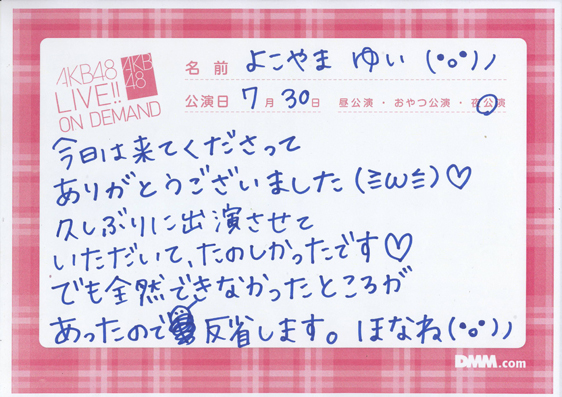 AKB48
LIVE!!
ON DEMAND
AKB
48
名前 よこやま ゆい (•̥ o •̥)ノ
公演日 7月30日 昼公演・おやつ公演・夜公演
今日は来てくださって
ありがとうございました(≧ω≦)♡
久しぶりに出演させて
いただいて、たのしかったです♡
でも全然できなかったところが
あったので反省します。ほなね(•̥ o •̥)ノ
DMM.com